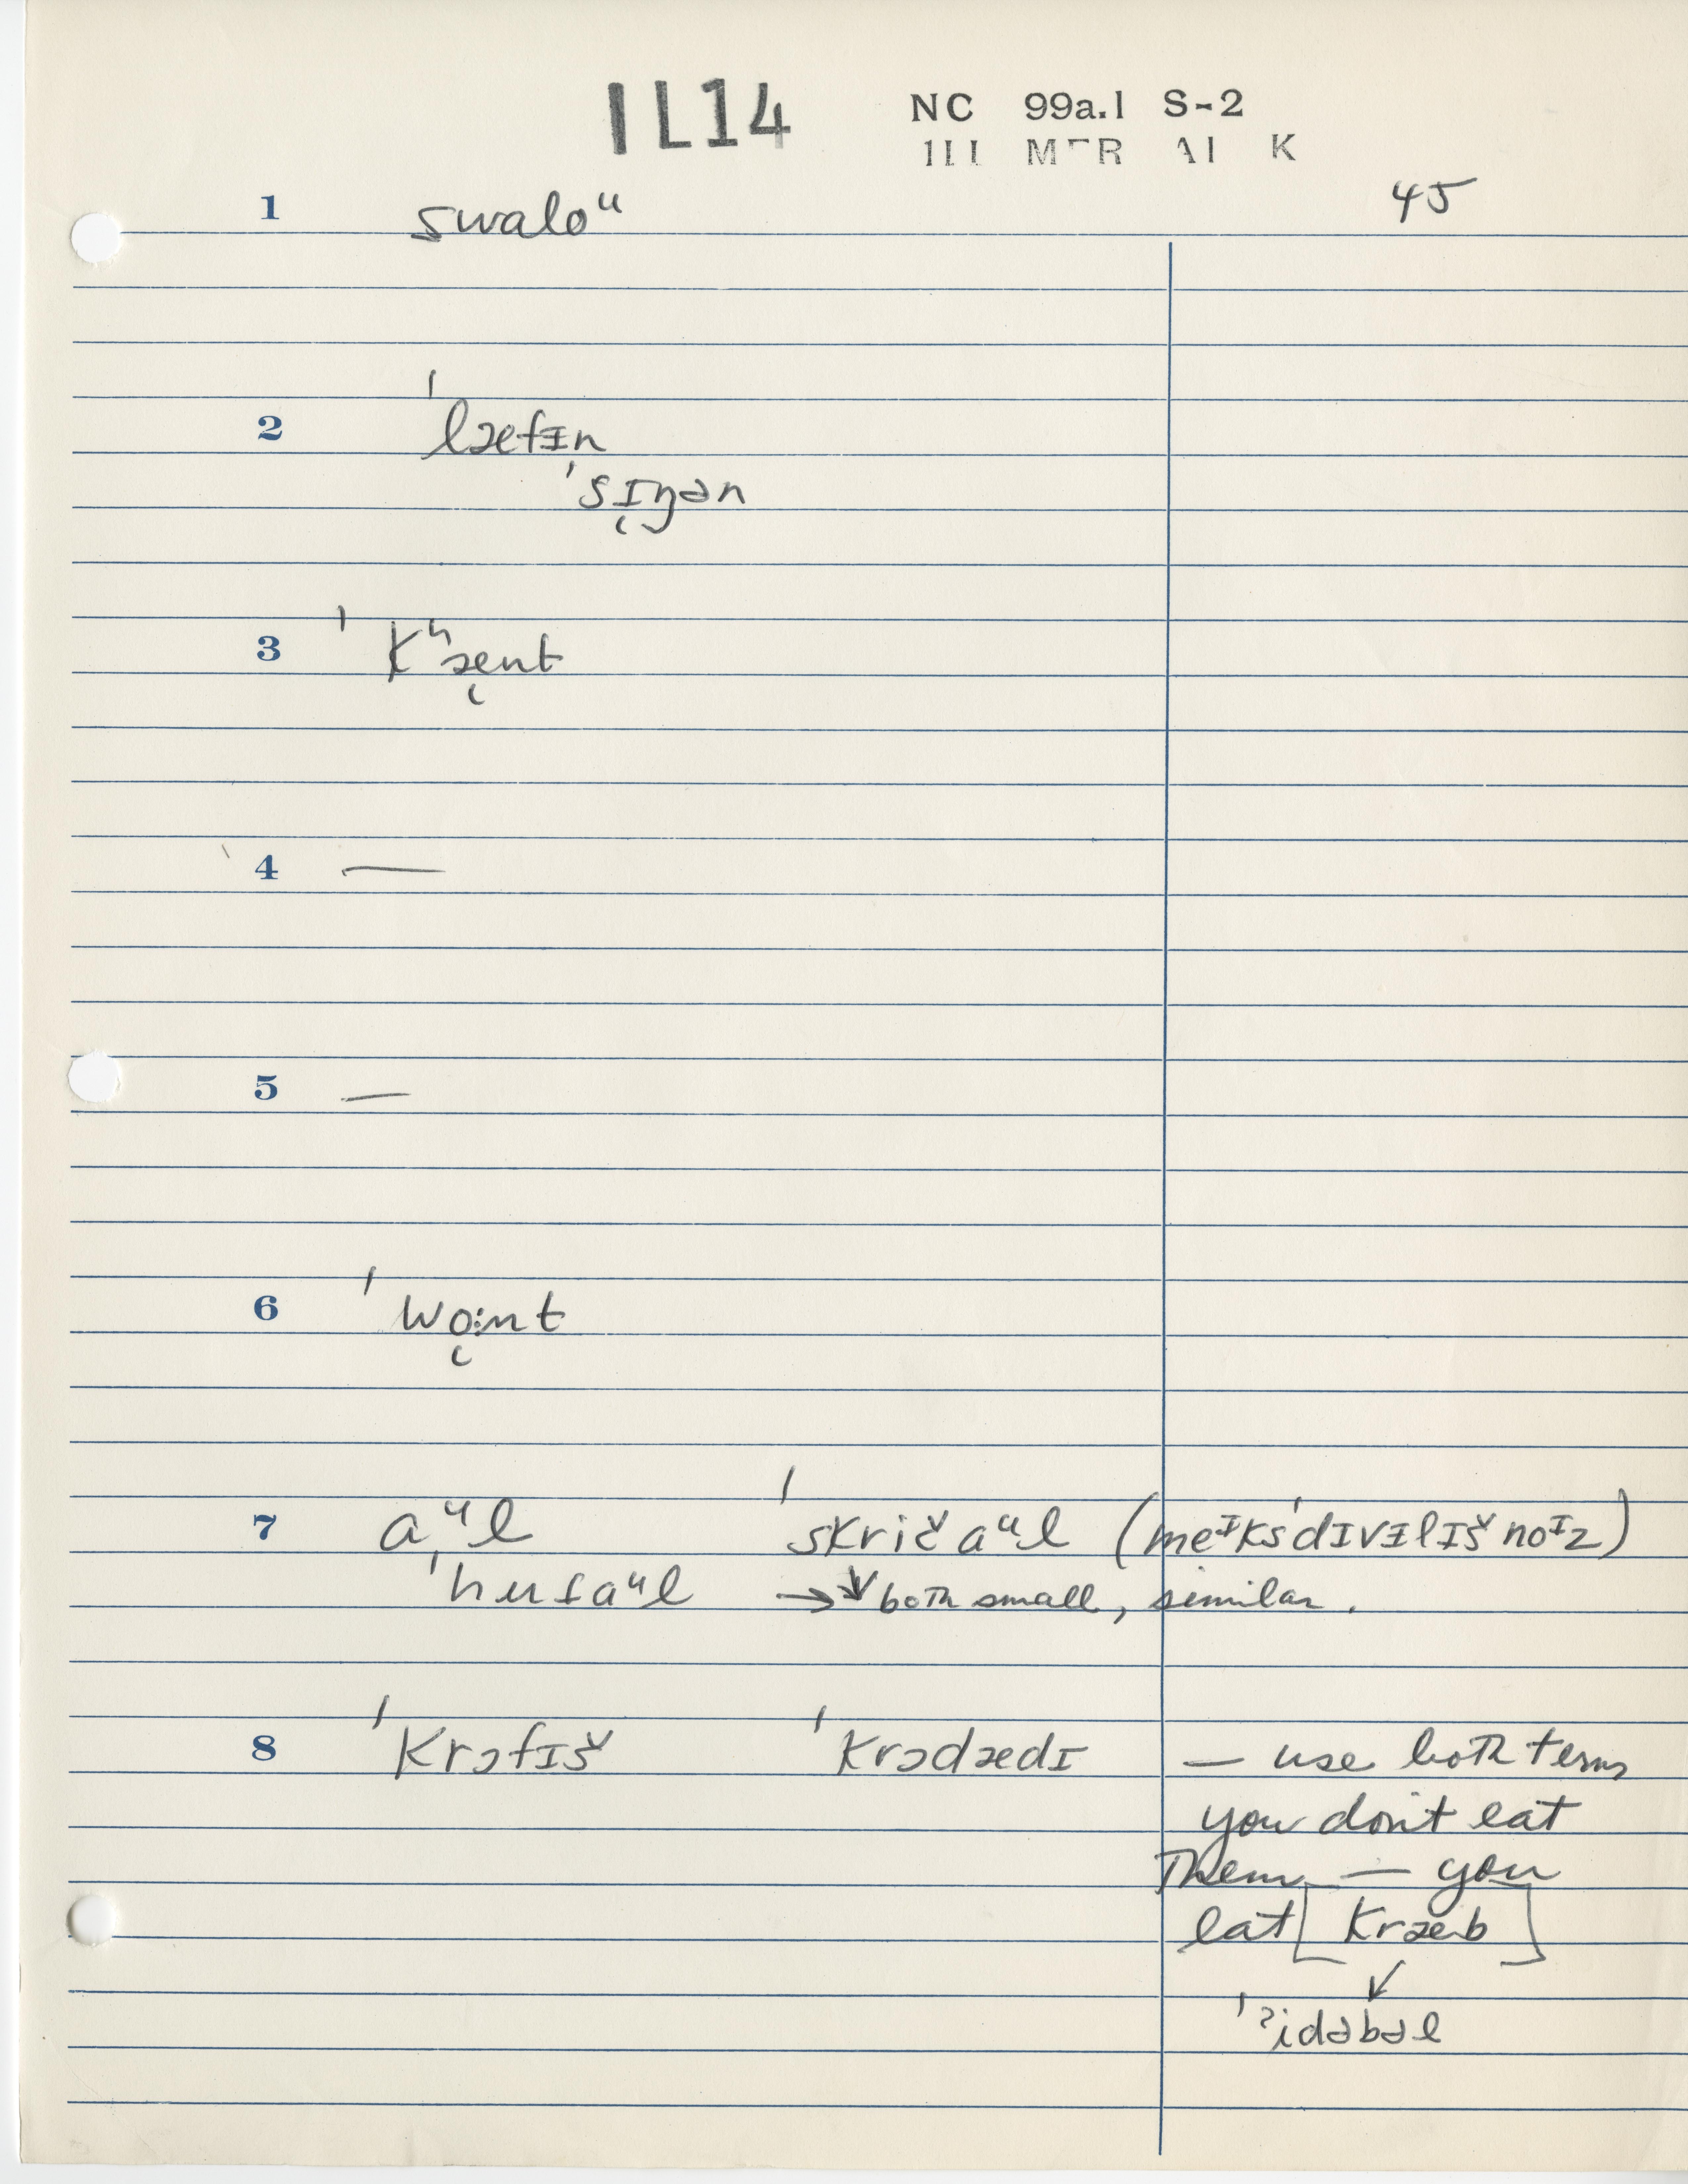 IL14 NC 99a.1 S-2
ILL MER AI K
45
1 swaloᵘ
2 ˈlæfɪn
ˈsɪ̜ŋən
3 ˈkʰæ̜nt
4 —
5 —
6 ˈwo̜:nt
7 aᵘl ˈskričaᵘl (meᶦksˈdɪvɪlɪšnoᶦz)
ˈhutaᵘl → ↓ both small, similar.
8 ˈkrɔfɪš ˈkrɔdædɪ — use both terms
you don't eat
them — you
eat [kræb]
↓
ˈʔidəbəl